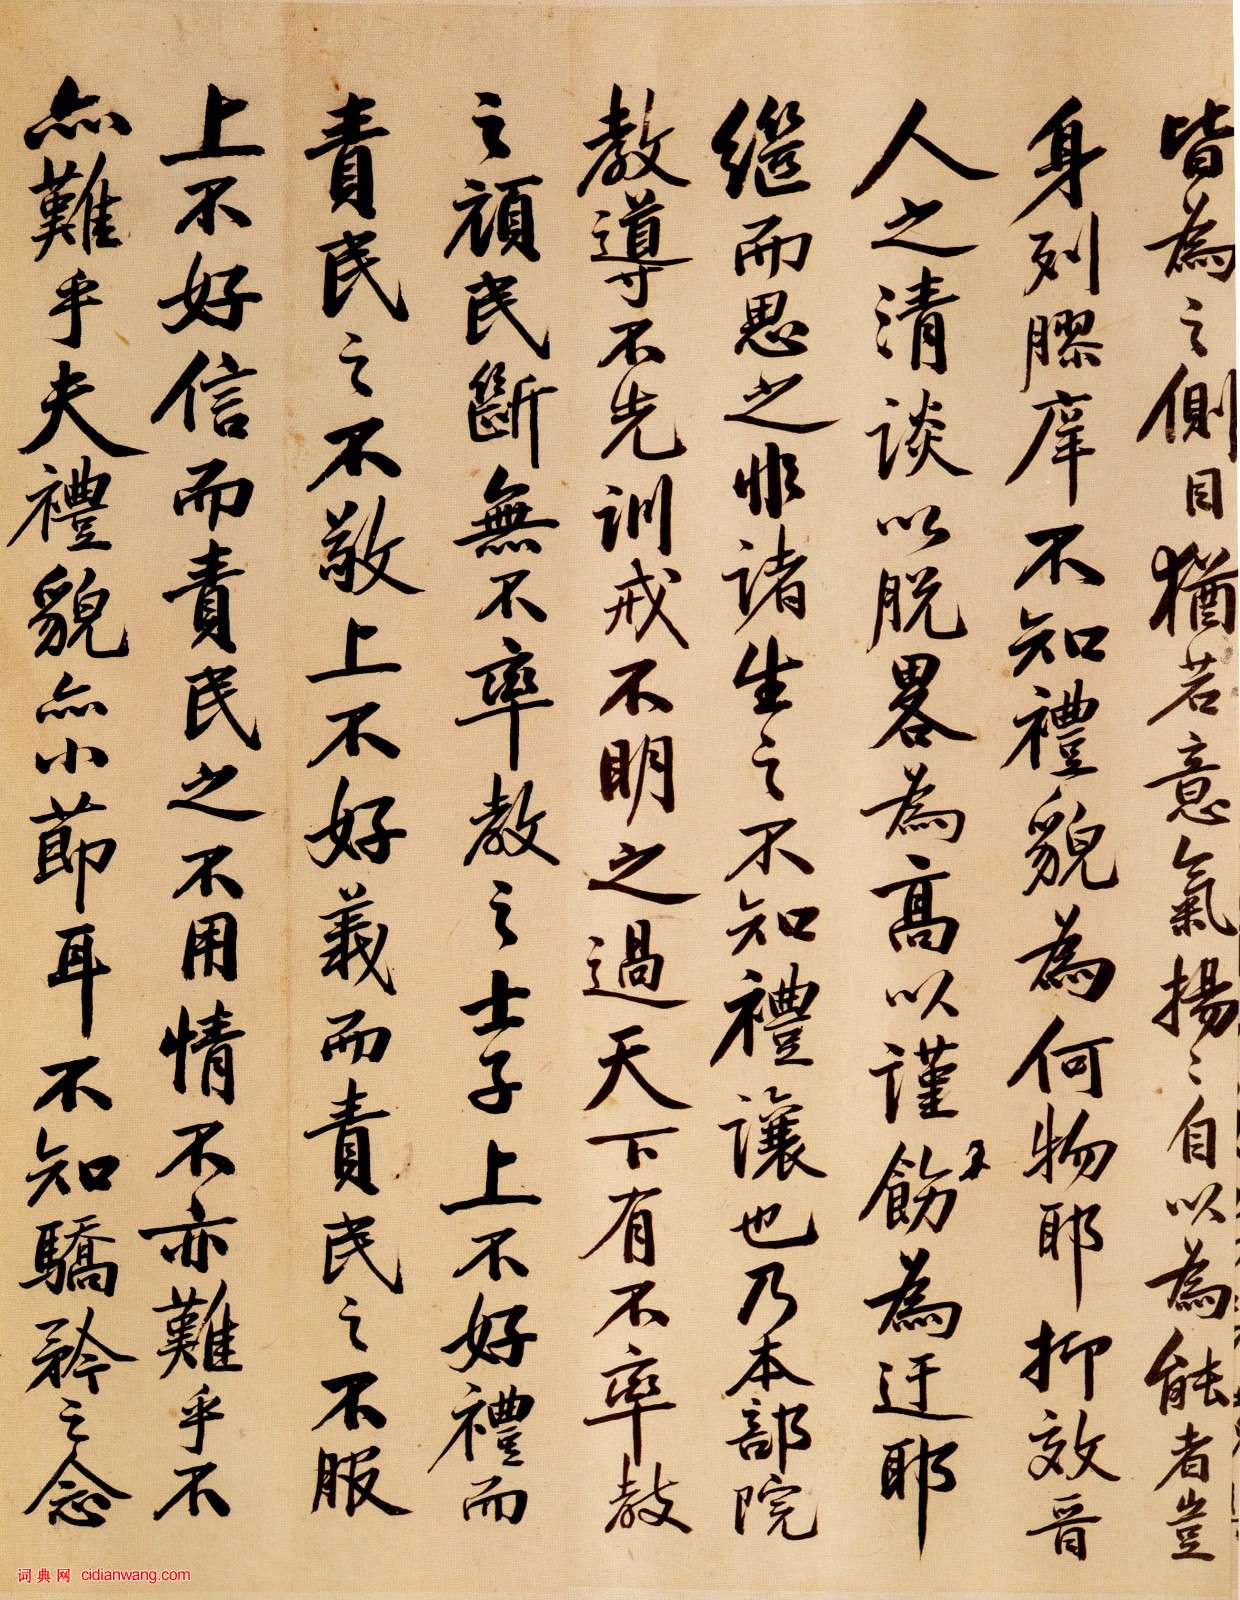 皆為之側目猶若意氣揚〻自以為能者豈
身列膠庠不知禮貌為何物耶抑效晉
人之清談以脫畧為高以謹飭為迂耶
繼而思之非諸生之不知禮讓也乃本部院
教導不先訓戒不明之過天下有不率教
之頑民斷無不率教之士子上不好禮而
責民之不敬上不好義而責民之不服
上不好信而責民之不用情不亦難乎不
亦難乎夫禮貌亦小節耳不知驕矜之念
词典网 cidianwang.com